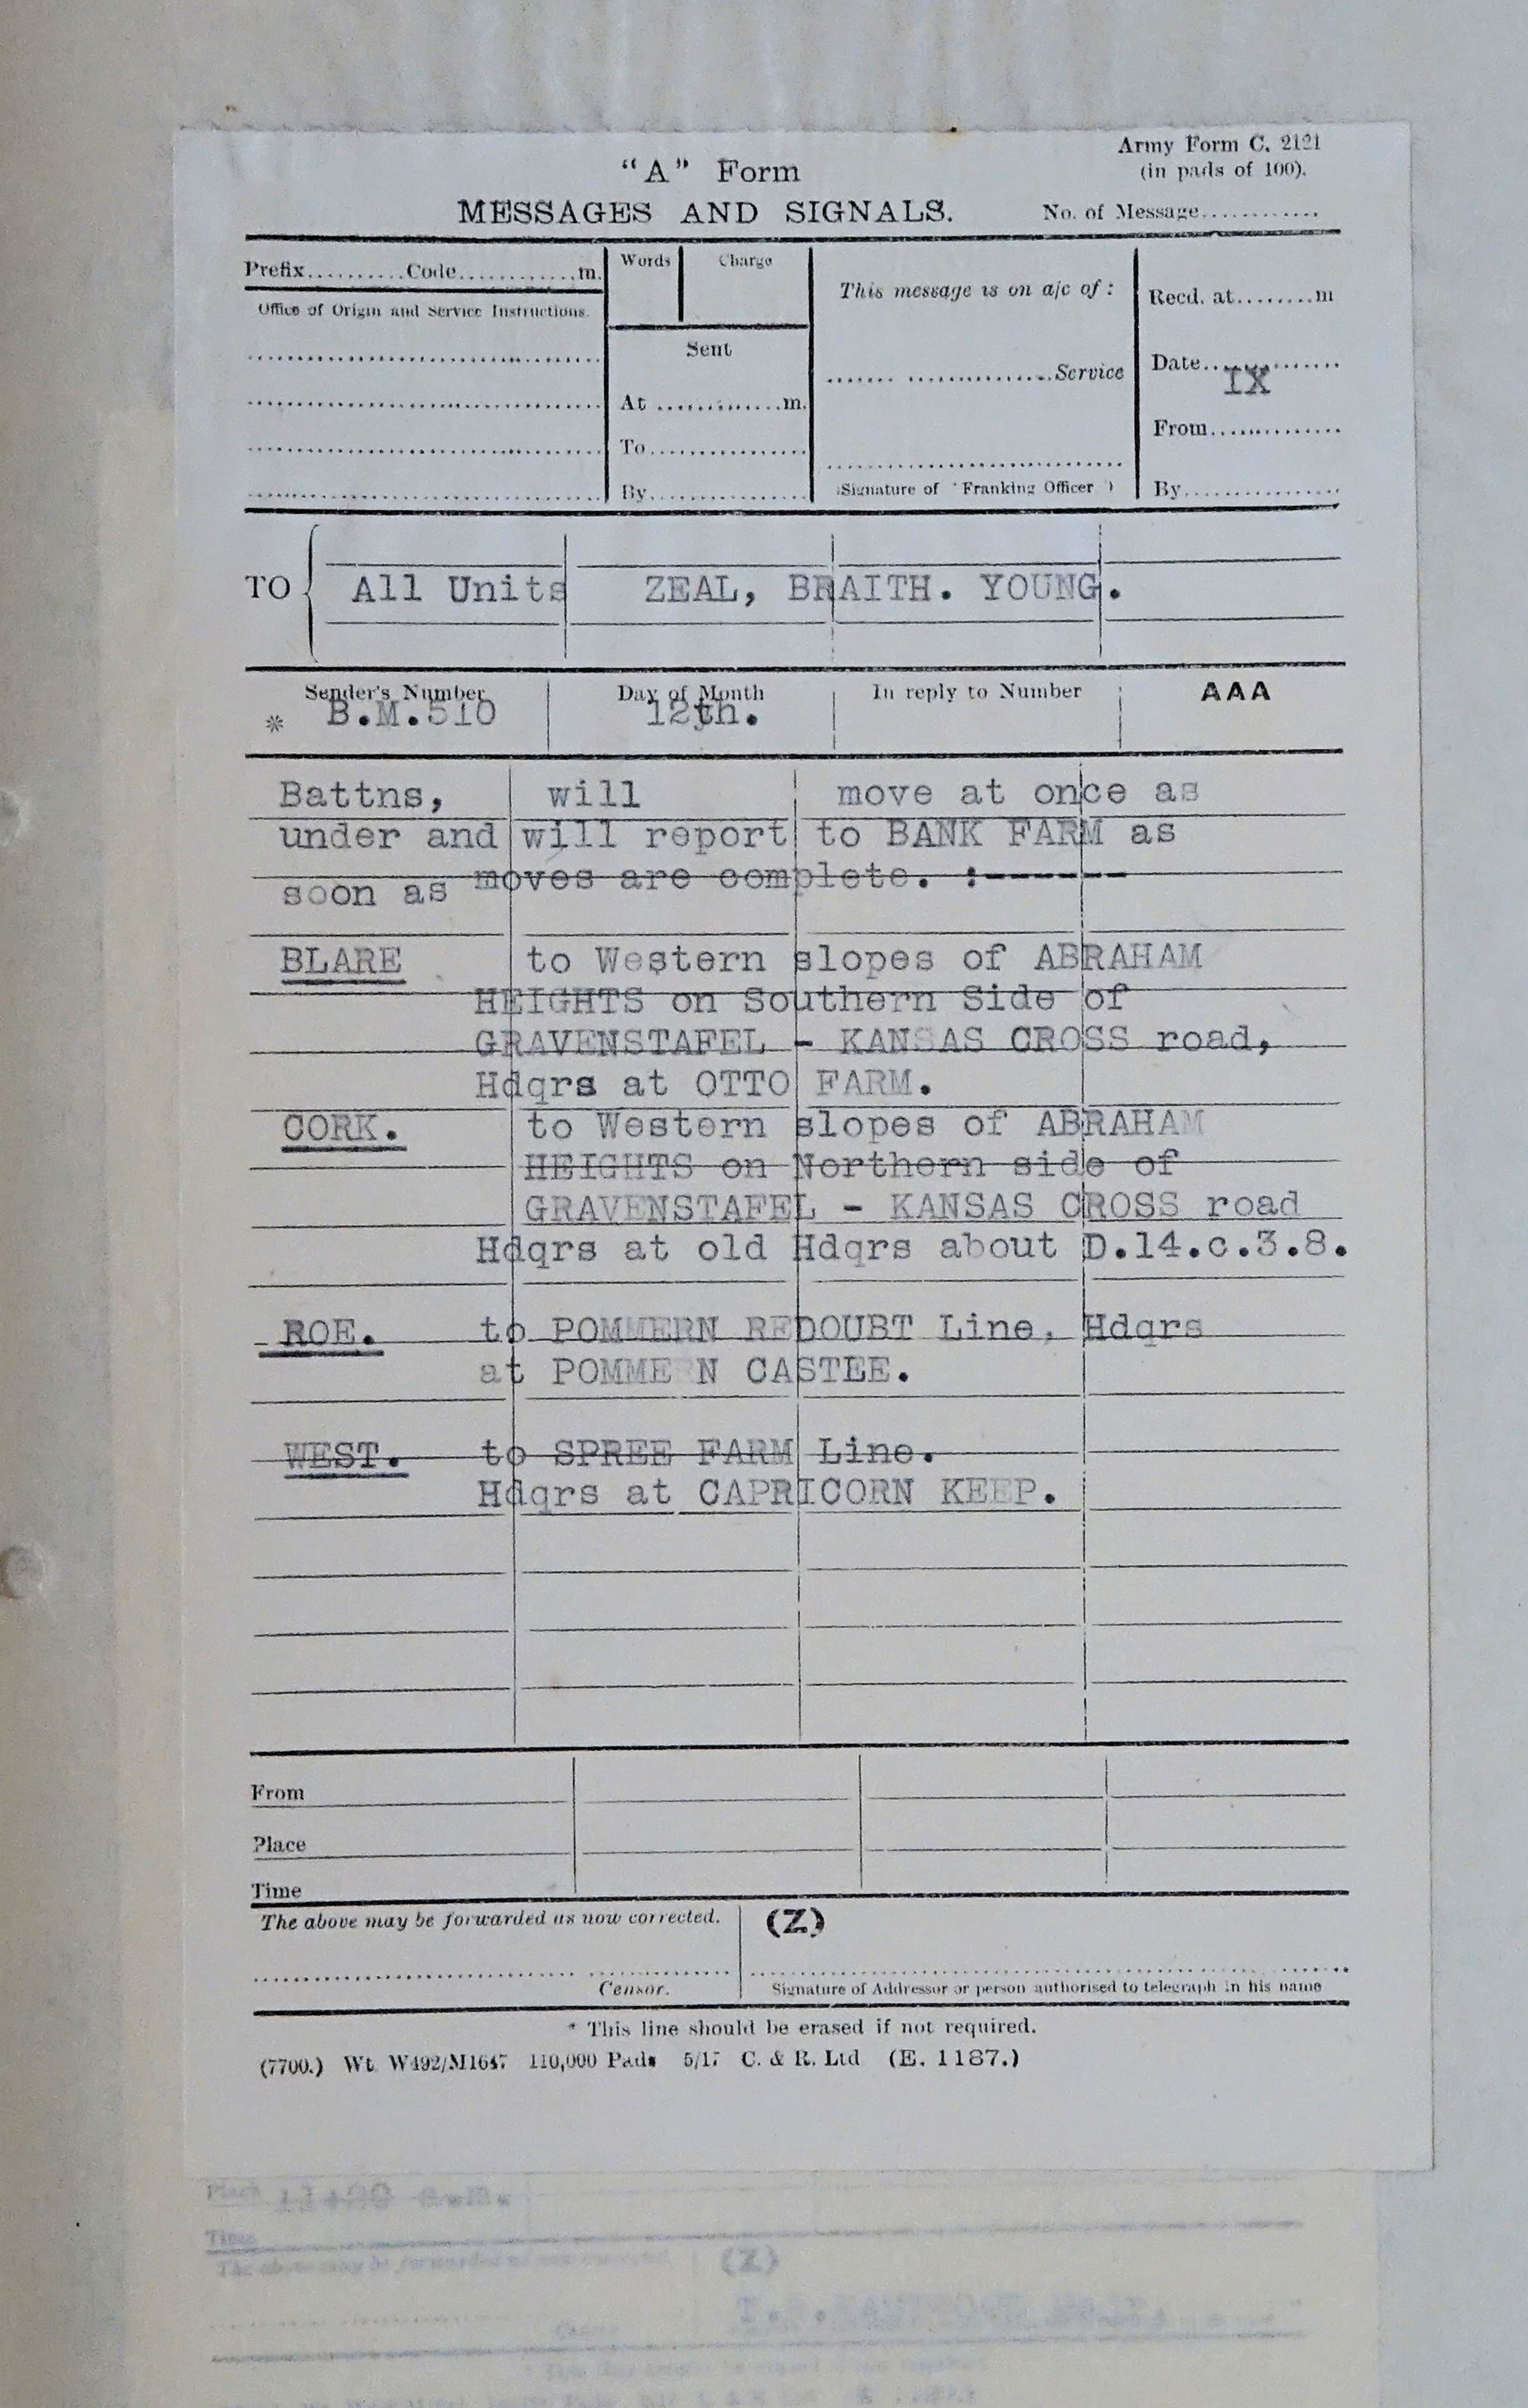 Army Form C. 2121
"A" Form
(in pads of 100).
MESSAGES AND SIGNALS.
No. of Message............
Prefix..........Code............m.
Words
Charge
This message is on a/c of :
Recd. at........m
Office of Origin and Service Instructions.
Sent
Date..............
IX
....... ..............Service
At .............m.
From..............
To................
By................
(Signature of "Franking Officer")
By................
TO
All Units ZEAL, BRAITH. YOUNG.
Sender's Number
Day of Month
In reply to Number
AAA
* B.M.510
12th.
Battns, will move at once as
under and will report to BANK FARM as
soon as moves are complete. :------
BLARE to Western slopes of ABRAHAM
HEIGHTS on Southern Side of
GRAVENSTAFEL - KANSAS CROSS road,
Hdqrs at OTTO FARM.
CORK. to Western slopes of ABRAHAM
HEIGHTS on Northern side of
GRAVENSTAFEL - KANSAS CROSS road
Hdqrs at old Hdqrs about D.14.c.3.8.
ROE. to POMMERN REDOUBT Line, Hdqrs
at POMME N CASTLE.
WEST. to SPREE FARM Line.
Hdqrs at CAPRICORN KEEP.
From
Place
Time
The above may be forwarded as now corrected.
(Z)
Censor.
Signature of Addressor or person authorised to telegraph in his name
* This line should be erased if not required.
(7700.) Wt. W492/M1647 110,000 Pads 5/17 C. & R. Ltd (E. 1187.)
Place
Time
The above may be forwarded as now corrected.
(Z)
Censor